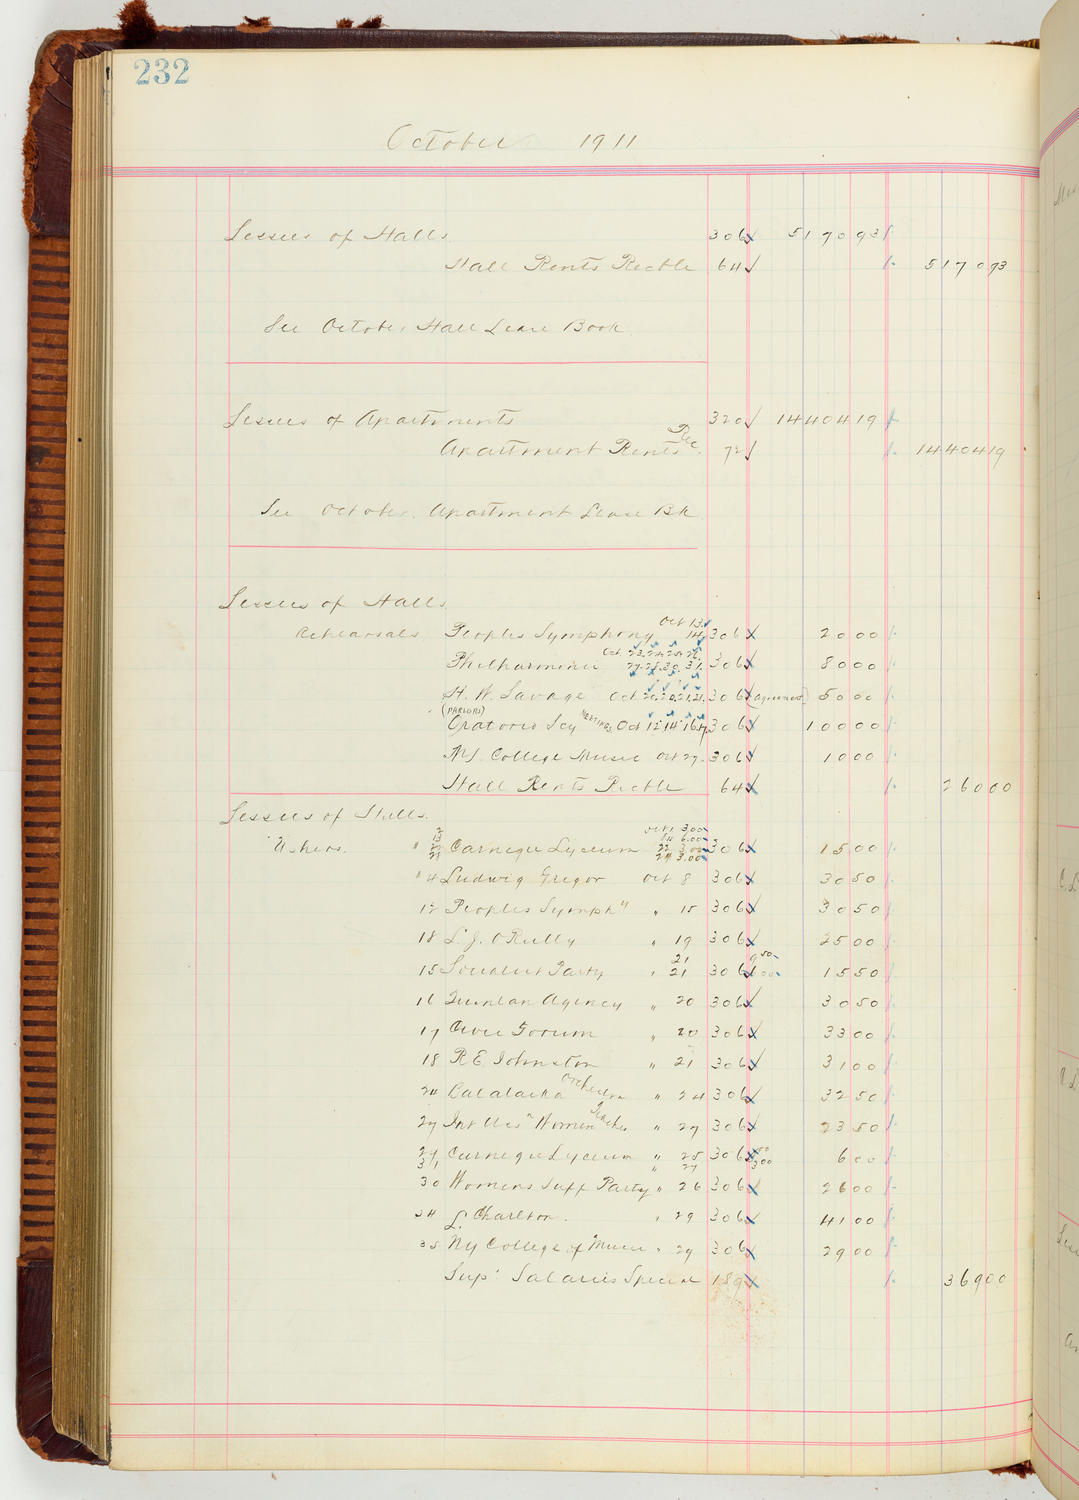 232
October 1911
Lessees of Halls 306 5170 93
Hall Rents Recble 64 5170 93
See October Hall Lease Book
Lessees of Apartments 320 14404 19
Apartment Rents Rec. 72 14404 19
See October Apartment Lease Bk
Lessees of Halls
Rehearsals Peoples Symphony Oct 13. 14. 306 20 00
Philharmonic Oct. 23. 24. 25. 26. 27. 28. 30. 31. 306 80 00
H. W. Savage Oct 20. 20. 21. 21. 306 (agreement) 50 00
(PARLORS)
Oratorio Scy MEETINGS Oct 12 14 16 17. 306 100 00
NY. College Music Oct 27. 306 10 00
Hall Rents Recble 64 260 00
Lessees of Halls.
Ushers. " 2 13 22 29 Carnegie Lyceum Oct 1 3.00 14 6.00 22 3.00 29 3.00 306 15 00
" 4 Ludwig Gregor Oct 8 306 30 50
12 Peoples Symphy " 15 306 30 50
18 L. J. O'Reilly " 19 306 25 00
15 Socialist Party " 21 21 306 9 50 6 00 15 50
16 Quinlan Agency " 20 306 30 50
17 Civic Forum " 20 306 33 00
18 R. E. Johnston " 21 306 31 00
24 Balalaika Orchestra " 24 306 32 50
27 Int Ass'n Women Teachers " 27 306 23 50
27 31 Carnegie Lyceum " 25 " 27 306 3 00 3 00 6 00
30 Womens Suff Party " 26 306 26 00
34 L. Charlton. " 29 306 41 00
35 NY College of Music " 29 306 29 00
Sup't Salaries Special 189 369 00